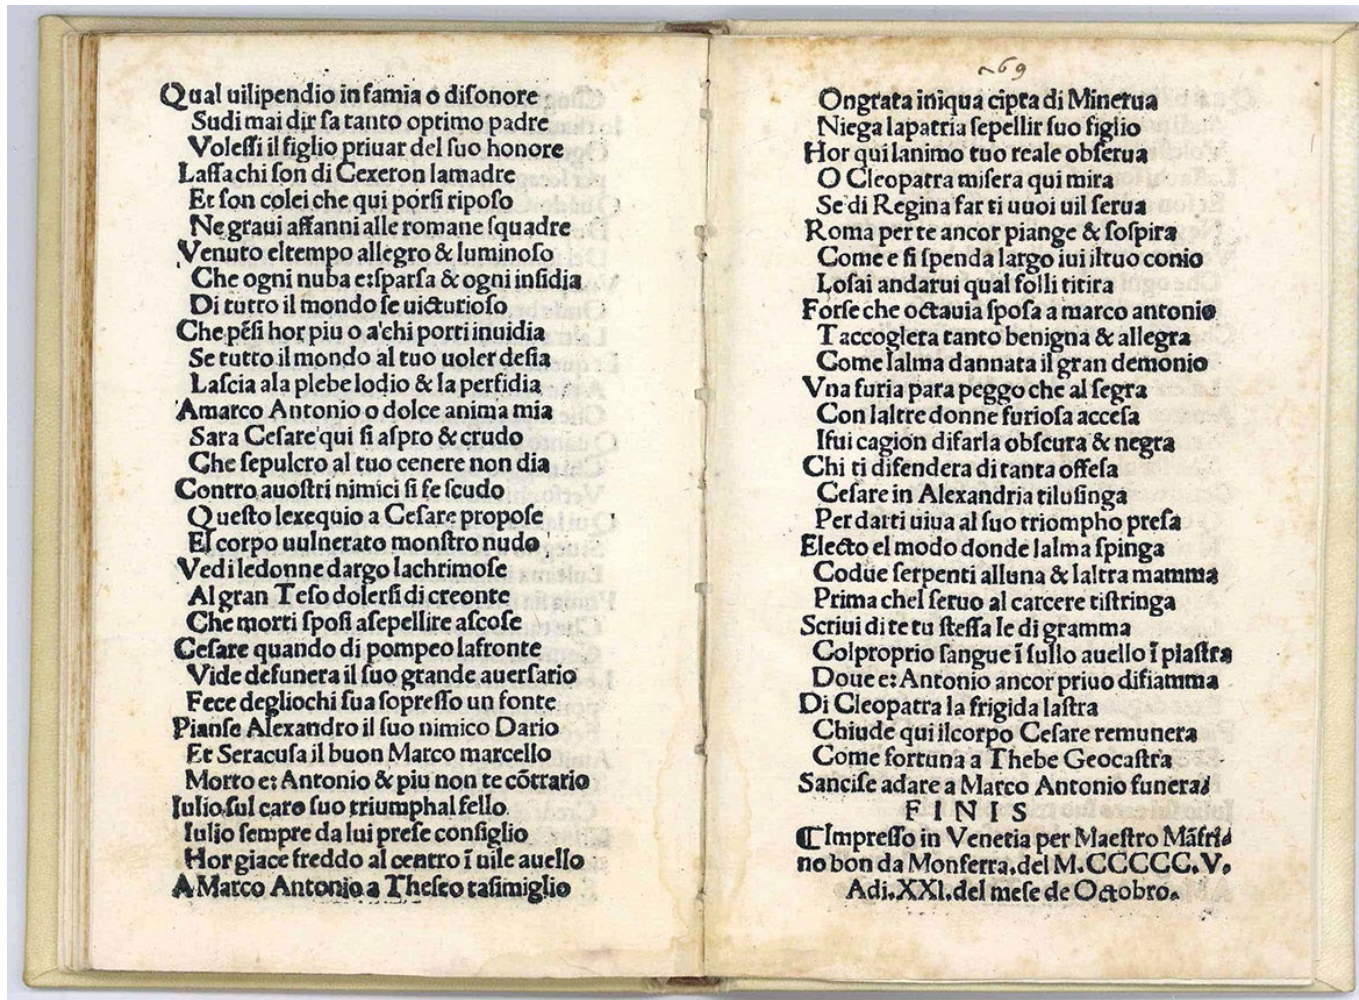 Qual uilipendio in famia o diſonore
Sudi mai dir ſa tanto optimo padre
Voleſſi il figlio priuar del ſuo honore
Laſſa chi ſon di Cexeron lamadre
Et ſon colei che qui porſi ripoſo
Ne graui affanni alle romane ſquadre
Venuto eltempo allegro & luminoſo
Che ogni nuba e:ſparſa & ogni inſidia
Di tutto il mondo ſe uicturioſo
Che pēſi hor piu o a'chi porti inuidia
Se tutto il mondo al tuo uoler deſia
Laſcia ala plebe lodio & la perfidia
Amarco Antonio o dolce anima mia
Sara Ceſare qui ſi aſpro & crudo
Che ſepulcro al tuo cenere non dia
Contro auoſtri nimici ſi fe ſcudo
Queſto lexequio a Ceſare propoſe
El corpo uulnerato monſtro nudo
Vedi ledonne dargo lachrimoſe
Al gran Teſo dolerſi di creonte
Che morti ſpoſi aſepellire aſcoſe
Ceſare quando di pompeo lafronte
Vide defunera il ſuo grande auerſario
Fece degliochi ſua ſopreſſo un fonte
Pianſe Alexandro il ſuo nimico Dario
Et Seracuſa il buon Marco marcello
Morto e: Antonio & piu non te cōtrario
Iulio ſul caro ſuo triumphal fello
Iulio ſempre da lui preſe conſiglio
Hor giace freddo al centro ī uile auello
A Marco Antonio a Theſeo taſimiglio
69
Ongrata iniqua cipta di Minerua
Niega lapatria ſepellir ſuo figlio
Hor qui lanimo tuo reale obſerua
O Cleopatra miſera qui mira
Se di Regina far ti uuoi uil ſerua
Roma per te ancor piange & ſoſpira
Come e ſi ſpenda largo iui iltuo conio
Loſai andarui qual folli titira
Forſe che octauia ſpoſa a marco antonio
Taccoglera tanto benigna & allegra
Come lalma dannata il gran demonio
Vna furia para peggo che al ſegra
Con laltre donne furioſa acceſa
Iſui cagion difarla obſcura & negra
Chi ti difendera di tanta offeſa
Ceſare in Alexandria tiluſinga
Per darti uiua al ſuo triompho preſa
Electo el modo donde lalma ſpinga
Codue ſerpenti alluna & laltra mamma
Prima chel ſeruo al carcere tiſtringa
Scriui di te tu ſteſſa le di gramma
Colproprio ſangue ī ſullo auello ī piaſtra
Doue e: Antonio ancor priuo difiamma
Di Cleopatra la frigida laſtra
Chiude qui ilcorpo Ceſare remunera
Come fortuna a Thebe Geocaſtra
Sanciſe adare a Marco Antonio funera
FINIS
¶Impreſſo in Venetia per Maeſtro Māfri
no bon da Monferra.del M.CCCCC.V.
Adi.XXI.del meſe de Octobro.